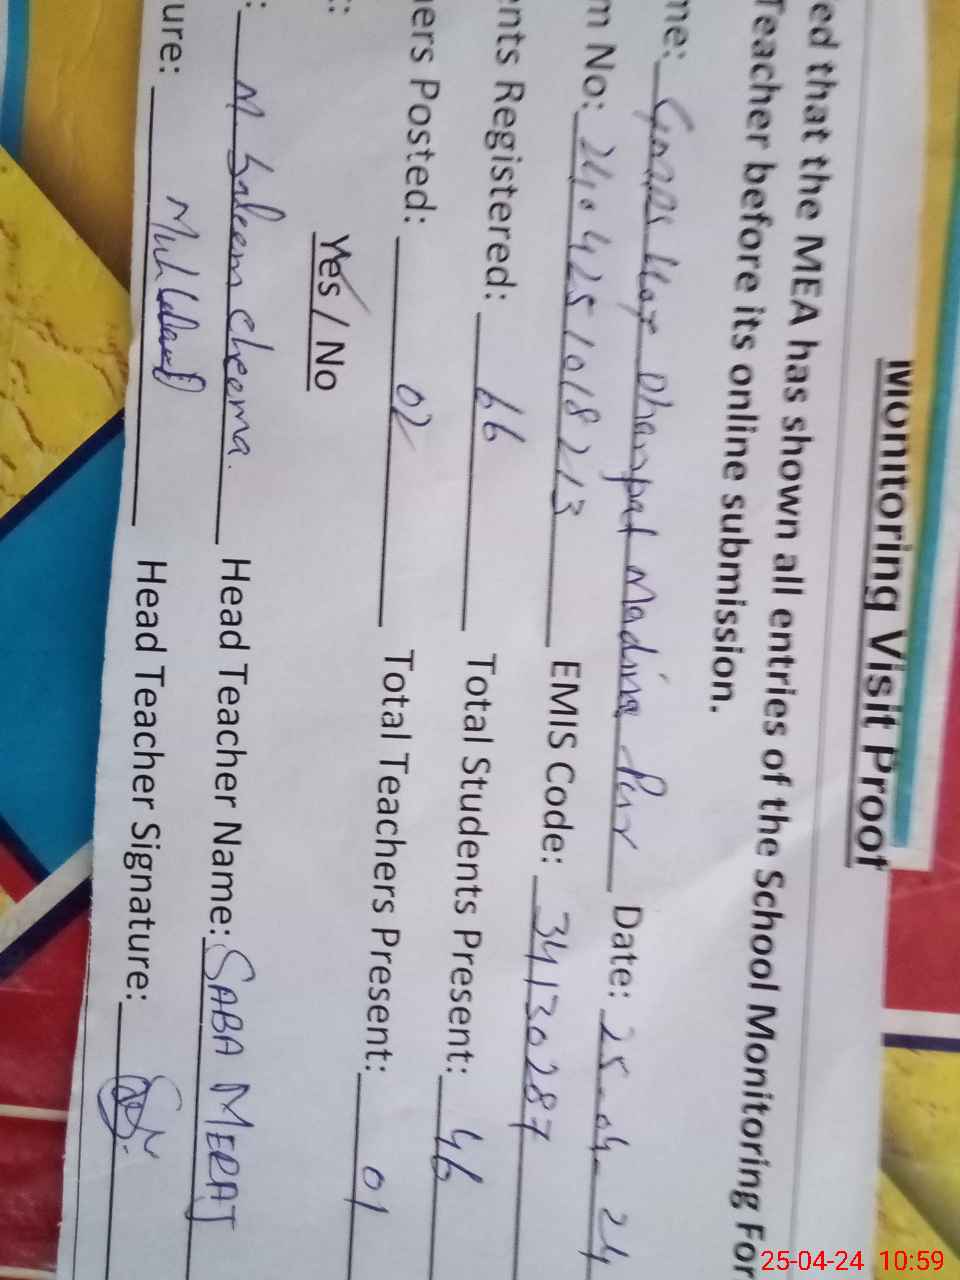 Monitoring Visit Proof
ed that the MEA has shown all entries of the School Monitoring For
Teacher before its online submission.
me: Dhanpat Madina Pur Date: 25-04-24
m No: 2404251018213 EMIS Code: 34130287
ents Registered: 66 Total Students Present: 46
ers Posted: 02 Total Teachers Present: 01
Yes / No
: M Saleem Cheema. Head Teacher Name: SABA MERAJ
ure: Head Teacher Signature:
25-04-24 10:59